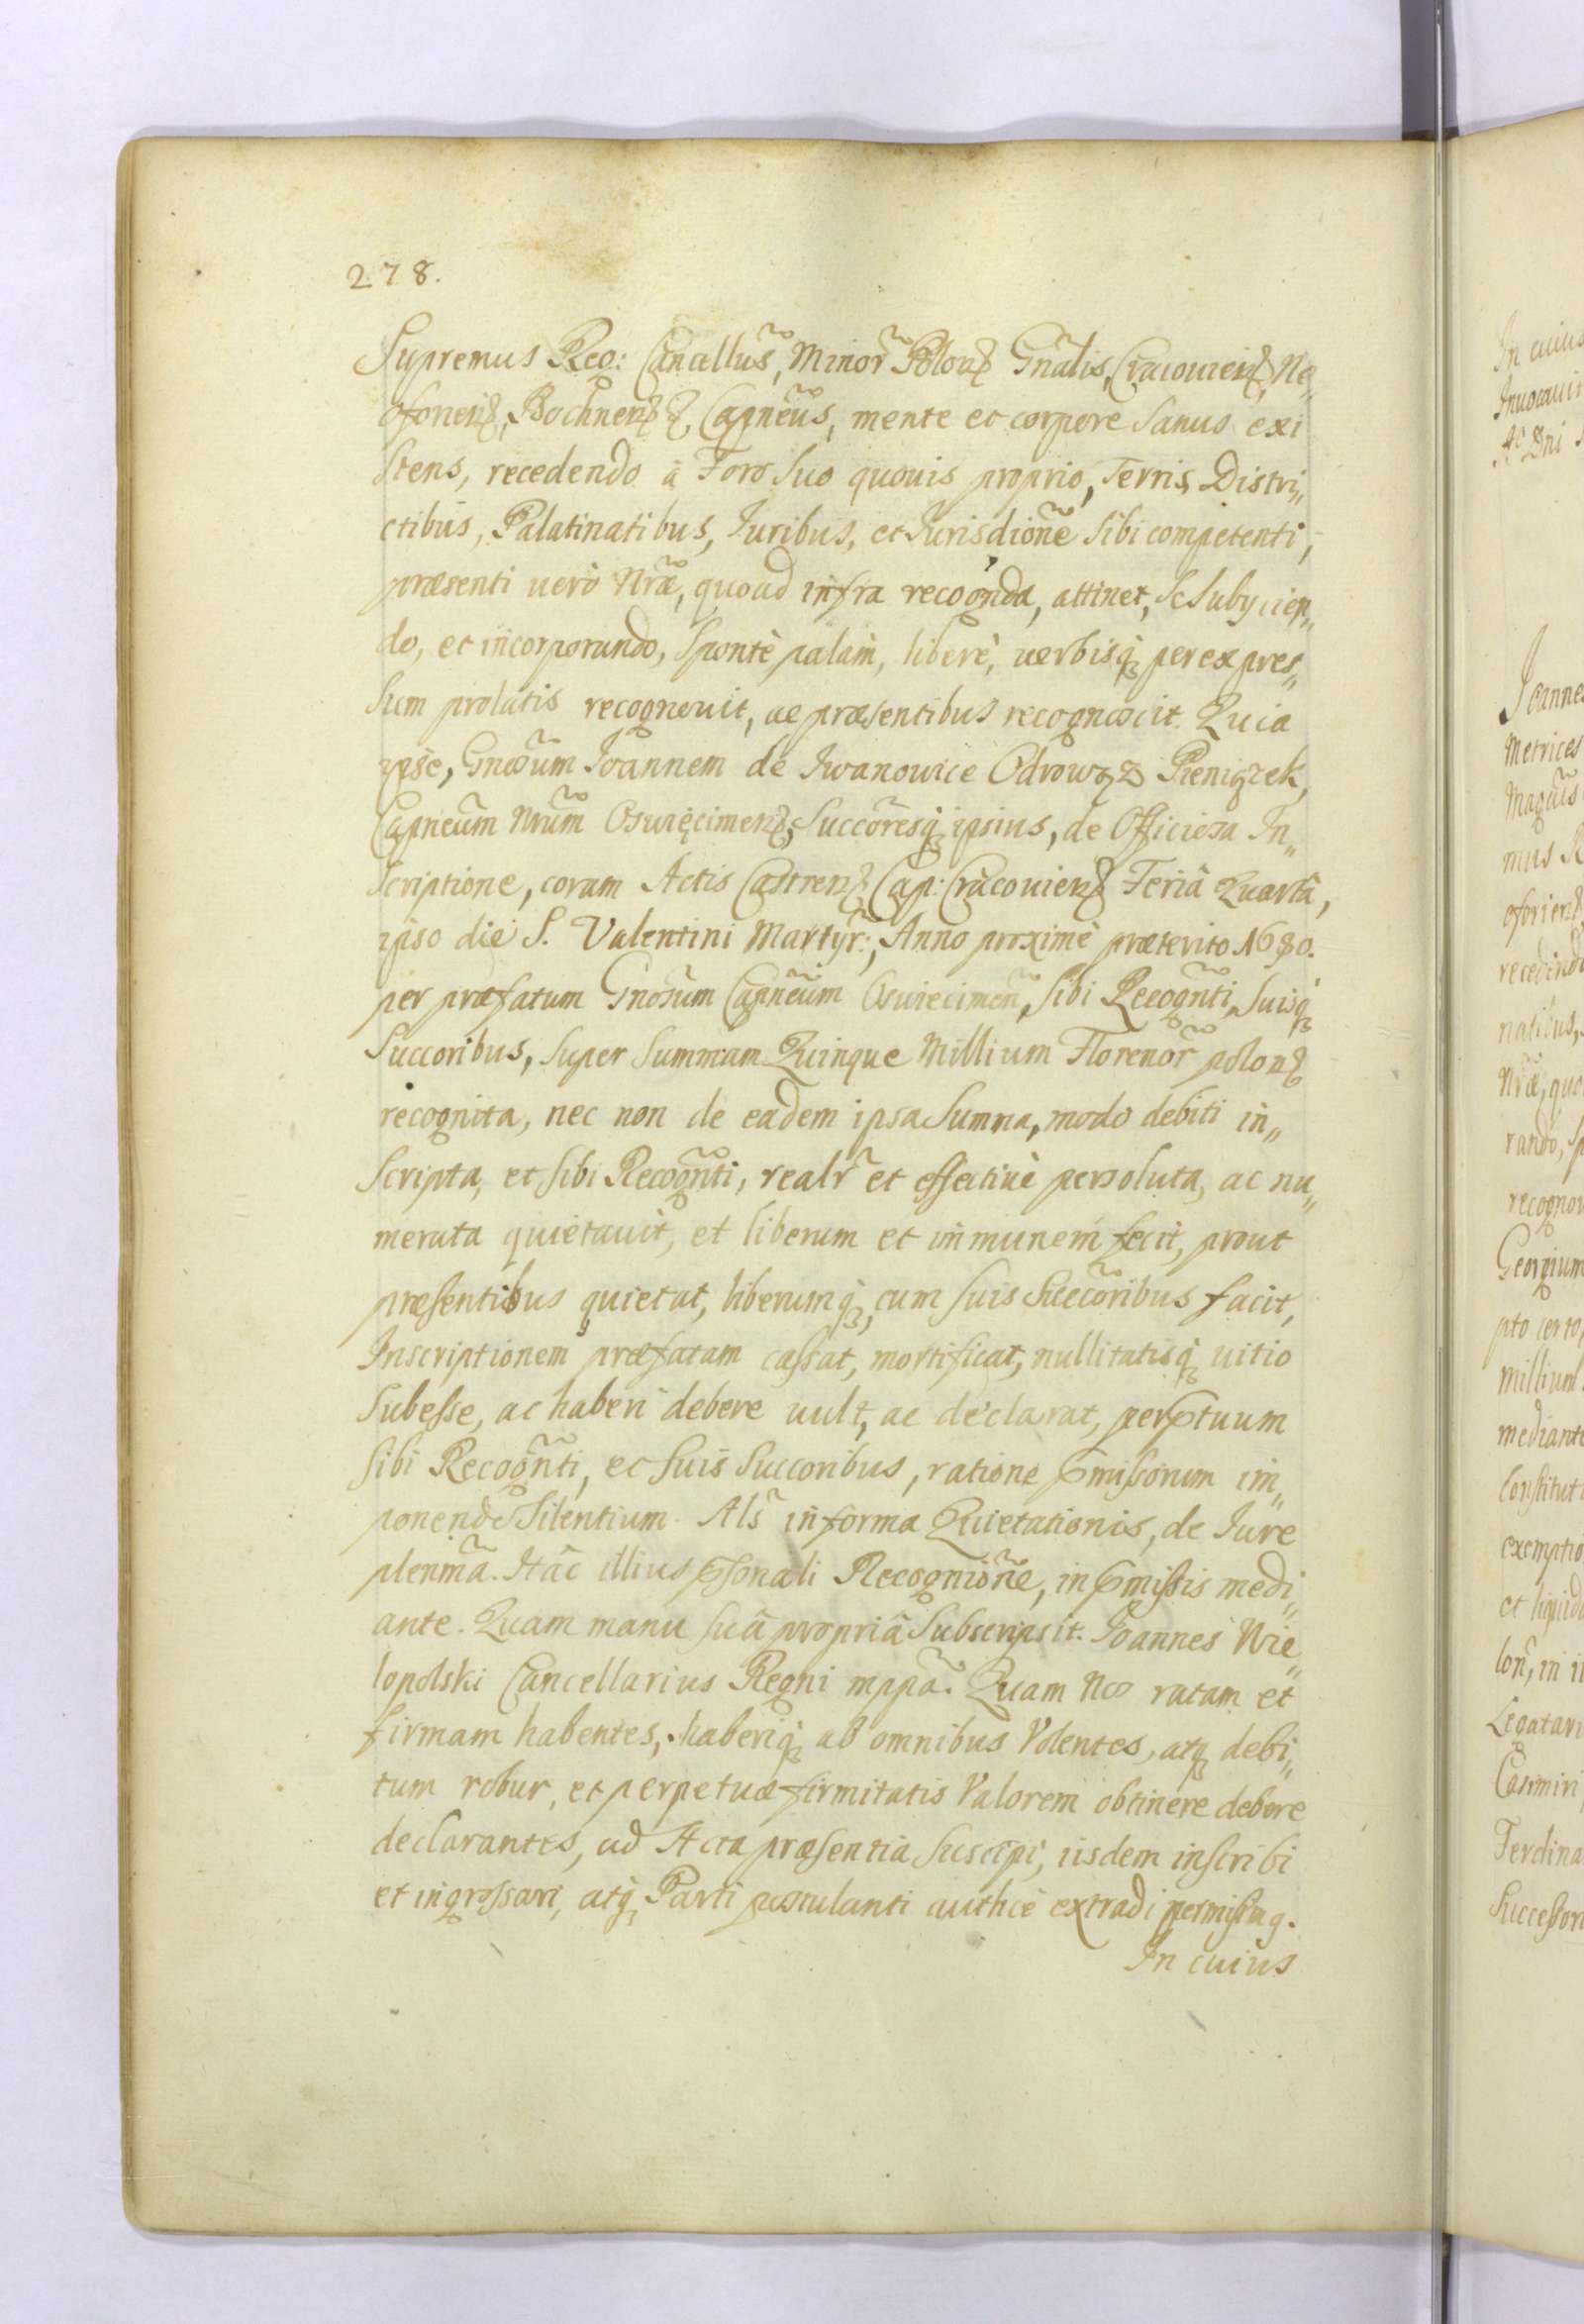 278.
Supremus Reg: Cancellus, Minor Polon Gnalis, Cracovien, Ne„
oforien, Bochnen & Capneus, mente et corpore Sanus exi
stens, recedendo à Foro Suo quovis proprio, Terris, Distri„
ctibus, Palatinatibus, Iuribus, et Iurisdione Sibi competenti,
præsenti verò Nræ, quoad infra recognda, attinet, Se Subijcien„
do, et incorporando, Spontè palàm, liberè, verbisq per expres„
sum prolatis recognovit, ac præsentibus recognoscit. Quia
ipse, Gnosum Ioannem de Iwanowice Odrowąz Pieniązek,
Capneum Nrum Osvięcimen, Succoresq ipsius, de Officiosa In„
scriptione, coram Actis Castren. Cap: Cracovien Feriâ Quartâ,
ipso die S. Valentini Martyr:, Anno proximè præterito 1680.
per præfatum Gnosum Capneum Osviecimen, Sibi Recognti, Suisq
Succoribus, Super Summam Quinque Millium Florenor polon
recognita, nec non de eadem ipsa Summa, modo debiti in„
scripta, et Sibi Recognti, realr et effectivè persoluta, ac nu„
merata quietavit, et liberum et immunem fecit, prout
præsentibus quietat, liberumq, cum suis Succoribus facit,
Inscriptionem præfatam cassat, mortificat, nullitatisq vitio
Subesse, ac haberi debere vult, ac declarat, perptuum
Sibi Recognti, et Suis Succoribus, ratione pmissorum im„
ponendo Silentium. Als in forma Quietationis, de Iure
plenma. Hac illius psonali Recognione, in pmissis medi„
ante. Quam manu suâ propriâ Subscripsit. Ioannes Wie„
lopolski Cancellarius Regni mppa. Quam Nos ratam et
firmam habentes, haberiq ab omnibus Volentes, atq debi„
tum robur, et perpetuæ firmitatis Valorem obtinere debere
declarantes, ad Acta præsentia Suscipi, iisdem inscribi
et ingrossari, atq Parti postulanti authcè extradi permisimus.
In cuius